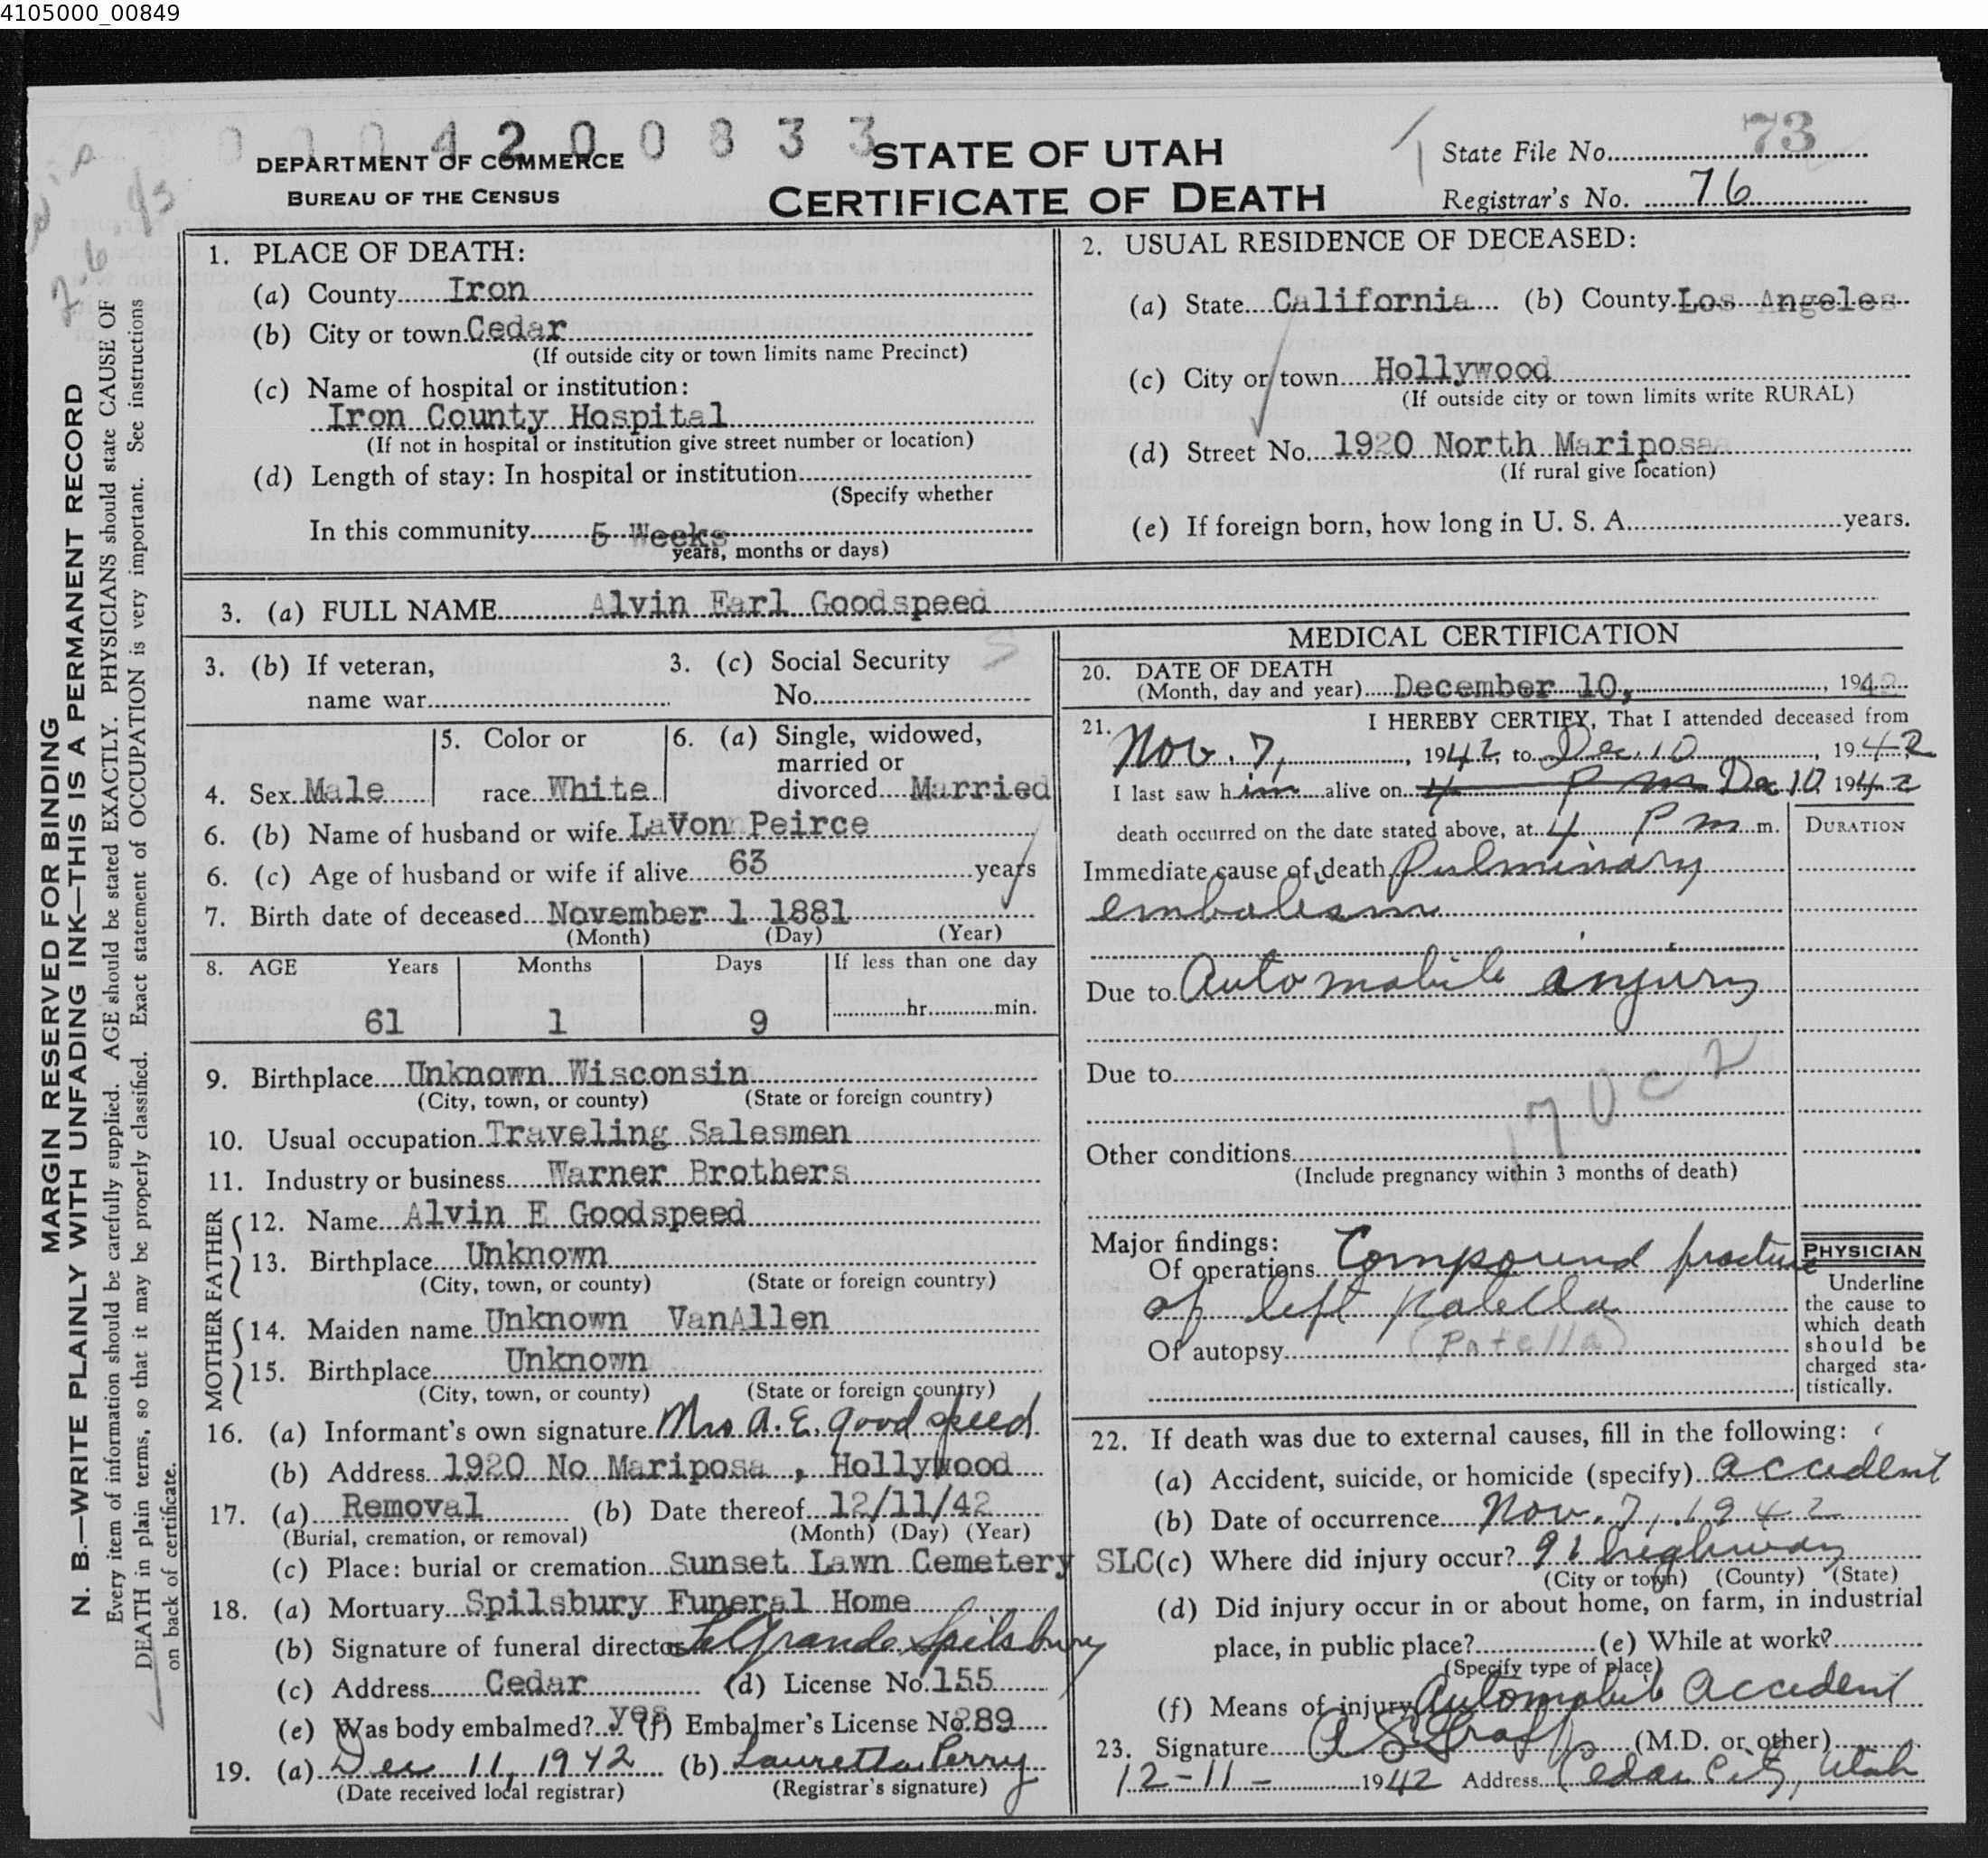 4105000_00849
0 0 0 4 2 0 0 8 3 3
DEPARTMENT OF COMMERCE
BUREAU OF THE CENSUS
STATE OF UTAH
CERTIFICATE OF DEATH
State File No. 73
Registrar's No. 76
MARGIN RESERVED FOR BINDING
N. B.—WRITE PLAINLY WITH UNFADING INK—THIS IS A PERMANENT RECORD
Every item of information should be carefully supplied. AGE should be stated EXACTLY. PHYSICIANS should state CAUSE OF
DEATH in plain terms, so that it may be properly classified. Exact statement of OCCUPATION is very important. See instructions
on back of certificate.
1. PLACE OF DEATH:
(a) County Iron
(b) City or town Cedar
(If outside city or town limits name Precinct)
(c) Name of hospital or institution:
Iron County Hospital
(If not in hospital or institution give street number or location)
(d) Length of stay: In hospital or institution
(Specify whether
In this community 5 Weeks
years, months or days)
2. USUAL RESIDENCE OF DECEASED:
(a) State California (b) County Los Angeles
(c) City or town Hollywood
(If outside city or town limits write RURAL)
(d) Street No. 1920 North Mariposa
(If rural give location)
(e) If foreign born, how long in U. S. A. years.
3. (a) FULL NAME Alvin Earl Goodspeed
3. (b) If veteran,
name war
3. (c) Social Security
No.
4. Sex Male
5. Color or
race White
6. (a) Single, widowed,
married or
divorced Married
6. (b) Name of husband or wife LaVon Peirce
6. (c) Age of husband or wife if alive 63 years
7. Birth date of deceased November 1 1881
(Month) (Day) (Year)
8. AGE Years Months Days If less than one day
61 1 9 hr. min.
9. Birthplace Unknown Wisconsin
(City, town, or county) (State or foreign country)
10. Usual occupation Traveling Salesmen
11. Industry or business Warner Brothers
FATHER
12. Name Alvin E Goodspeed
13. Birthplace Unknown
(City, town, or county) (State or foreign country)
MOTHER
14. Maiden name Unknown VanAllen
15. Birthplace Unknown
(City, town, or county) (State or foreign country)
16. (a) Informant's own signature Mrs A. E. Goodspeed
(b) Address 1920 No Mariposa , Hollywood
17. (a) Removal (b) Date thereof 12/11/42
(Burial, cremation, or removal) (Month) (Day) (Year)
(c) Place: burial or cremation Sunset Lawn Cemetery SLC
18. (a) Mortuary Spilsbury Funeral Home
(b) Signature of funeral director LeGrande Spilsbury
(c) Address Cedar (d) License No. 155
(e) Was body embalmed? yes (f) Embalmer's License No. 289
19. (a) Dec 11, 1942 (b) Lauretta Perry
(Date received local registrar) (Registrar's signature)
MEDICAL CERTIFICATION
20. DATE OF DEATH
(Month, day and year) December 10, 1942
21. I HEREBY CERTIFY, That I attended deceased from
Nov. 7, 1942, to Dec. 10, 1942
I last saw him alive on 4 P m Dec 10 1942
death occurred on the date stated above, at 4 P m m.
DURATION
Immediate cause of death Pulminary
embolism
Due to Automobile injury
Due to
170c2
Other conditions
(Include pregnancy within 3 months of death)
Major findings:
Of operations Compound fracture
of left patella
Of autopsy (Patella)
PHYSICIAN
Underline
the cause to
which death
should be
charged sta-
tistically.
22. If death was due to external causes, fill in the following:
(a) Accident, suicide, or homicide (specify) accident
(b) Date of occurrence Nov. 7, 1942
(c) Where did injury occur? 91 highway
(City or town) (County) (State)
(d) Did injury occur in or about home, on farm, in industrial
place, in public place? (e) While at work?
(Specify type of place)
(f) Means of injury Automobile Accident
23. Signature A S Graff (M.D. or other)
12-11- 1942 Address Cedar City, Utah